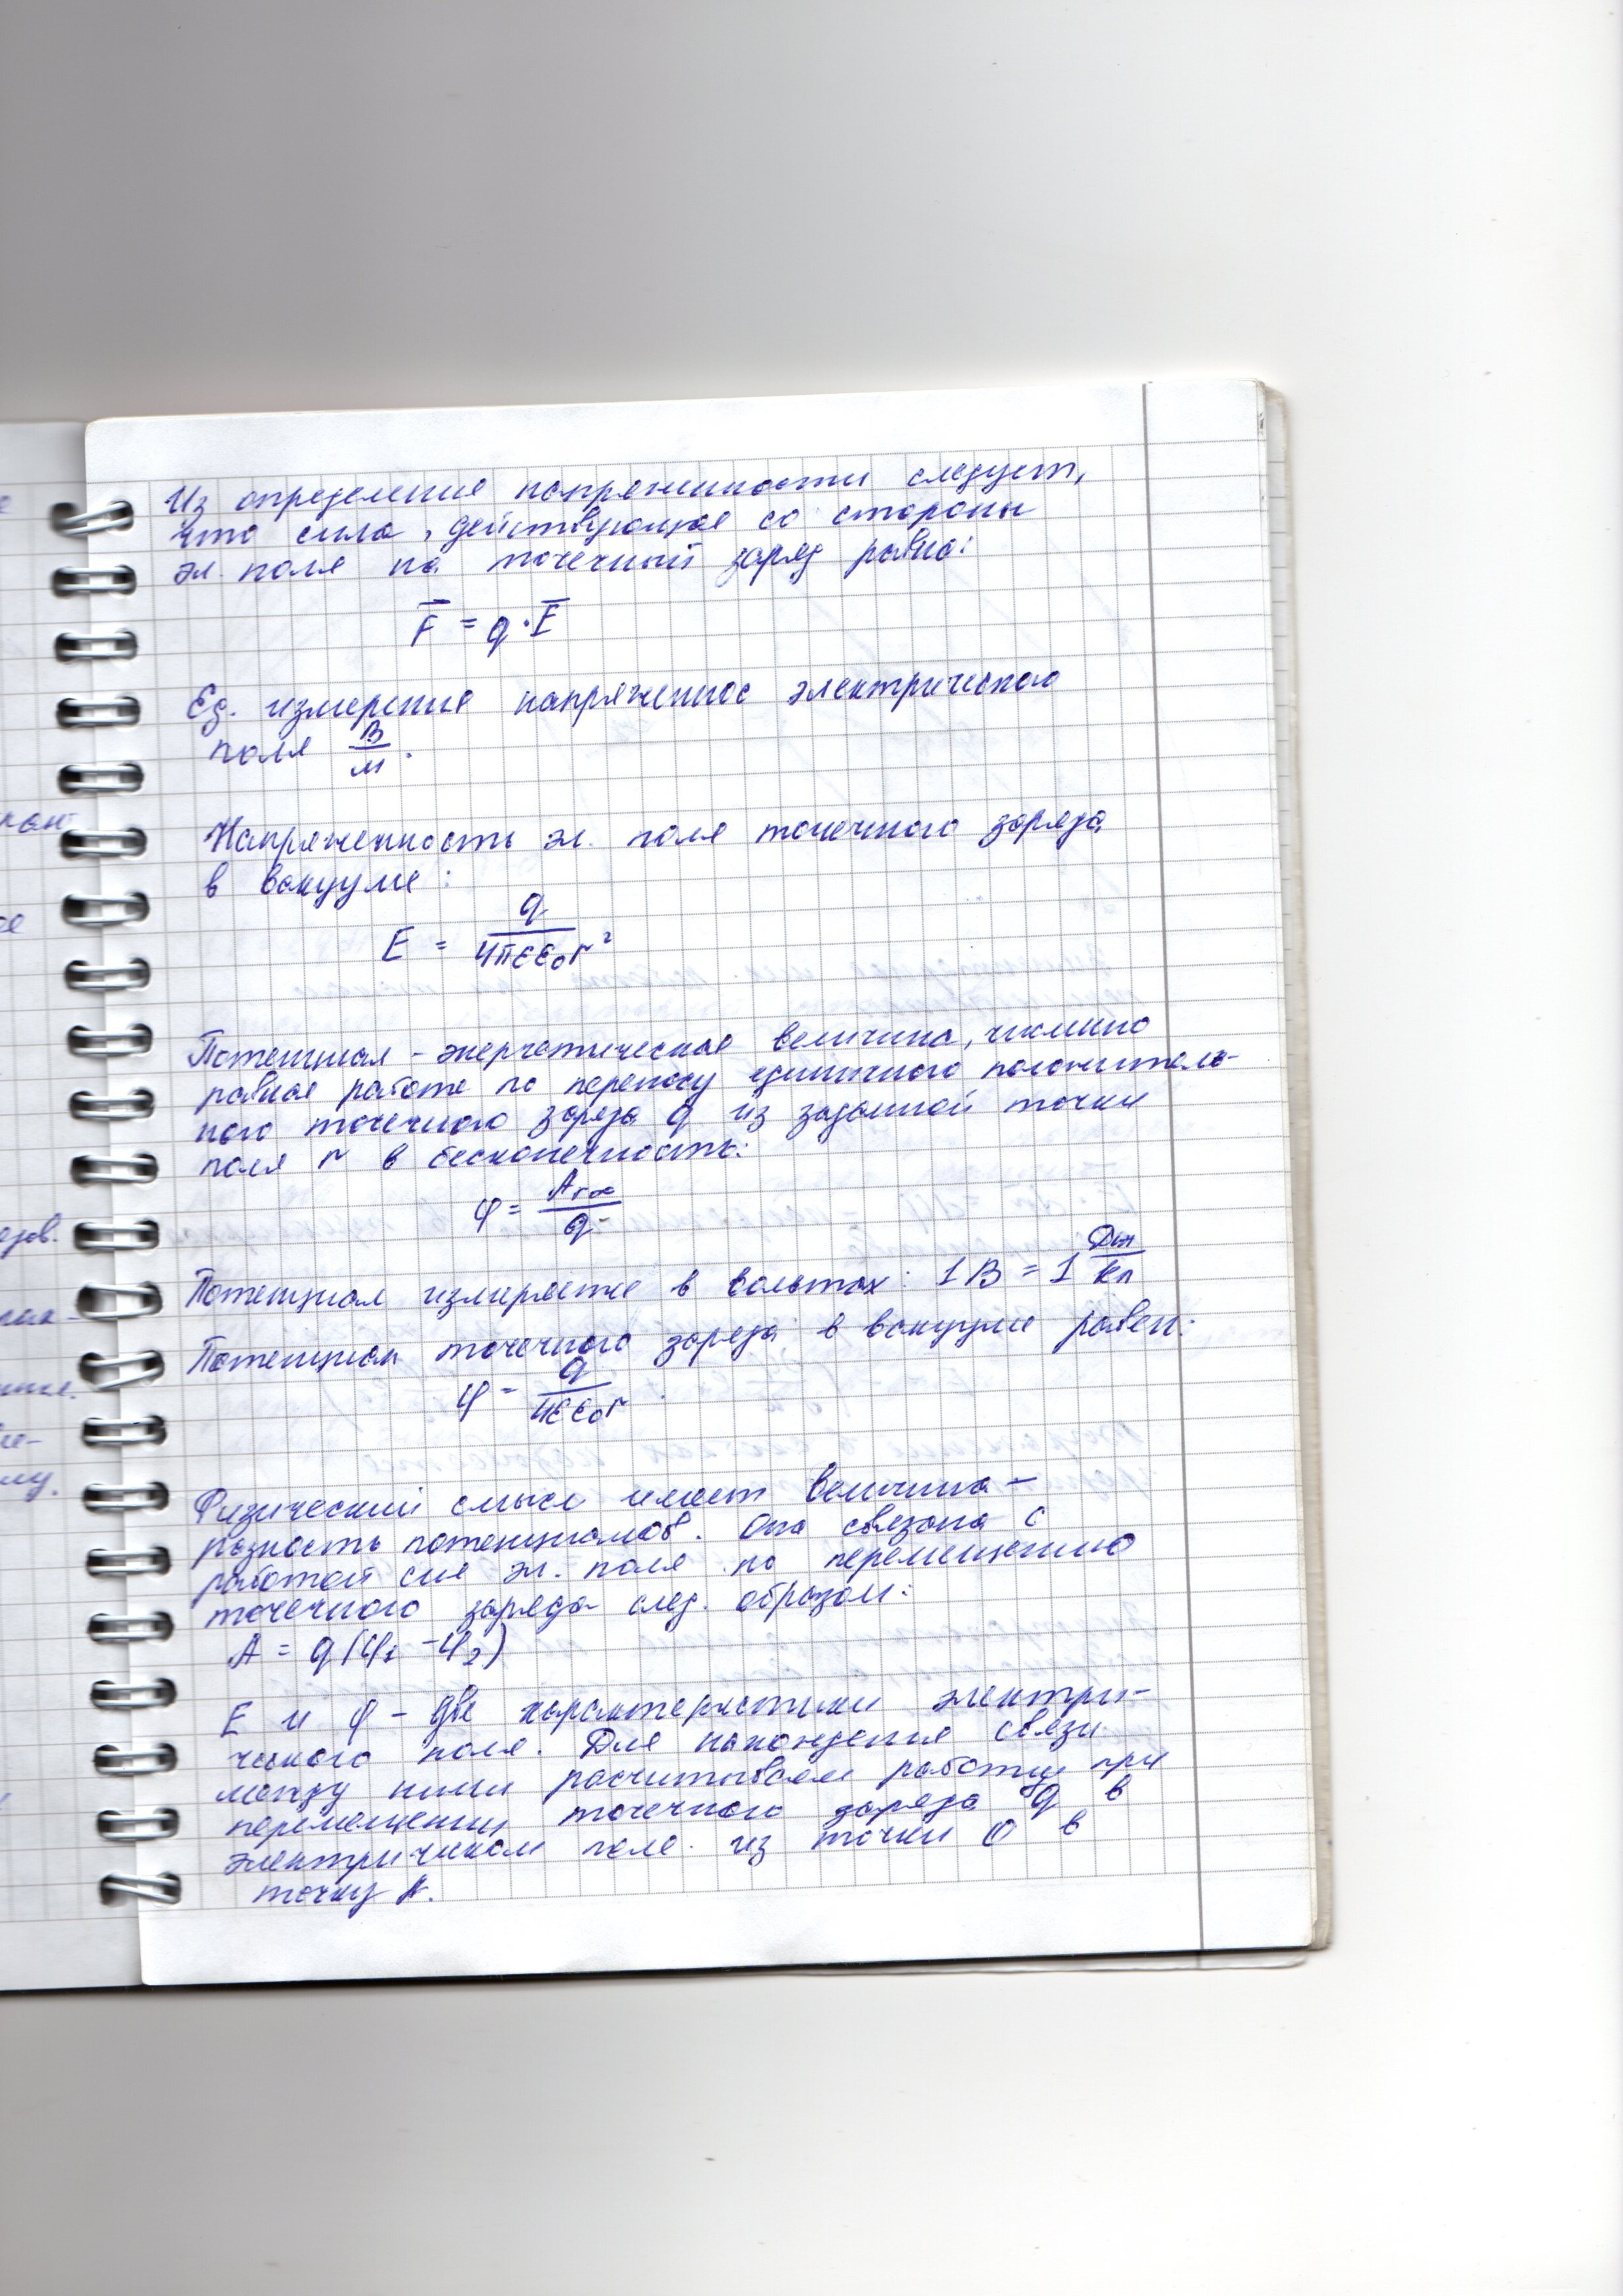 Из определения напряженности следует,
что сила, действующая со стороны
эл. поля на точечный заряд равна:
F = q · E
Ед. измерения напряженнос электрического
поля В/м.
Напряженность эл. поля точечного заряда
в вакууме:
E = q / 4πεε₀r²
Потенциал - энергетическая величина, численно
равная работе по переносу единичного положитель-
ного точечного заряда q из заданной точки
поля r в бесконечность:
φ = Ar∞ / q
Потенциал измеряется в вольтах: 1 В = 1 Дж/Кл
Потенциал точечного заряда в вакууме равен:
φ = q / 4εε₀r.
Физический смысл имеет величина -
разность потенциалов. Она связана с
работой сил эл. поля по перемещению
точечного заряда след. образом:
A = q(φ₁ - φ₂)
E и φ - две характеристики электри-
ческого поля. Для нахождения связи
между ними расчитываем работу при
перемещении точечного заряда q в
электричиском поле из точки О в
точку А.